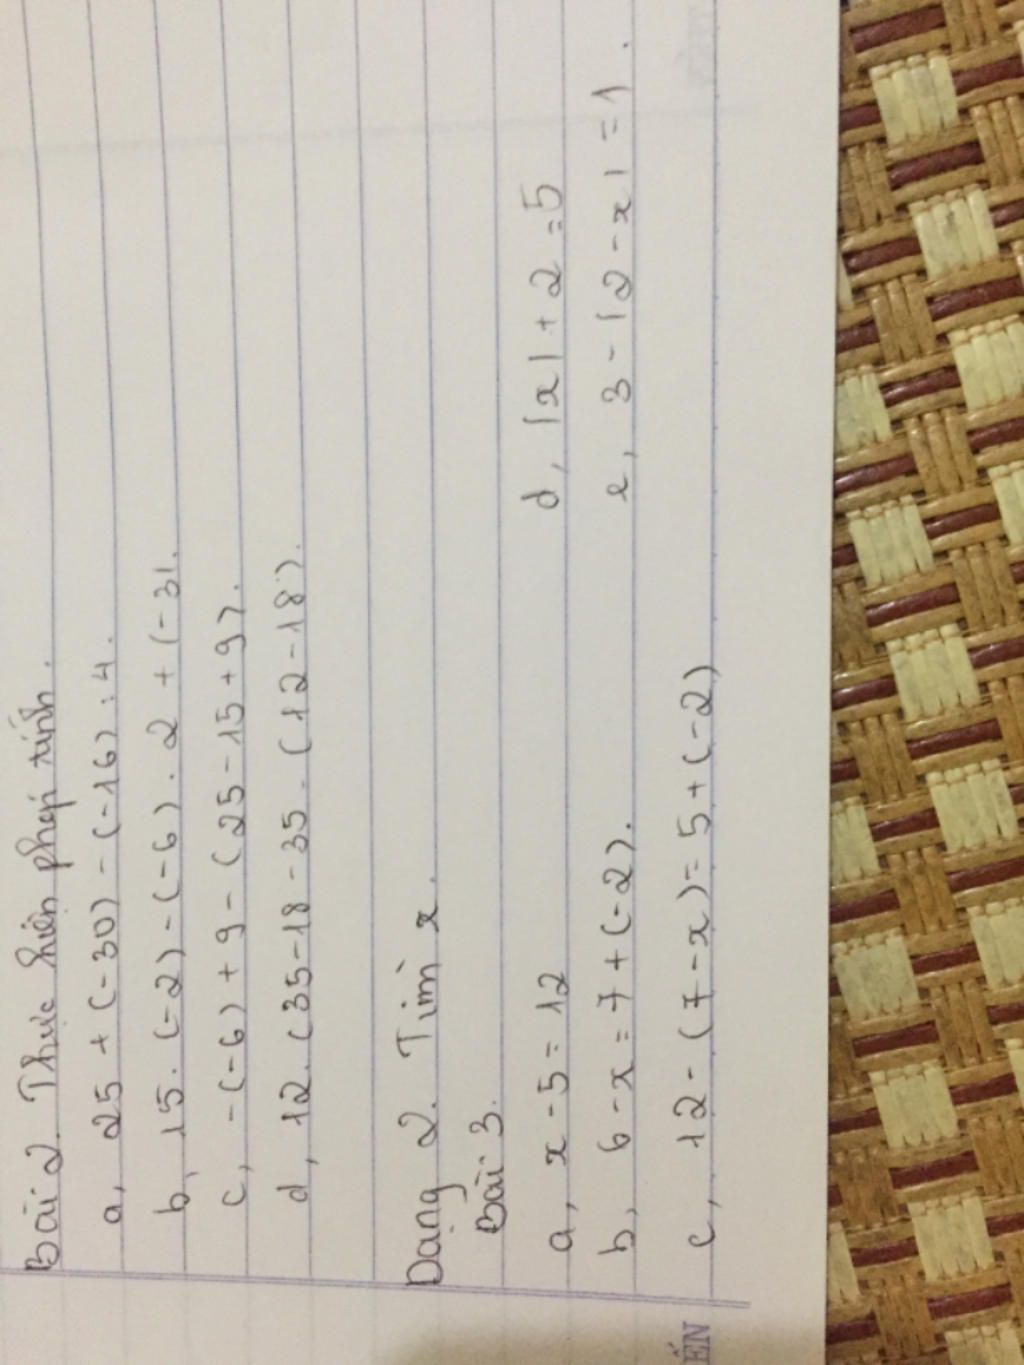 Bài 2. Thực hiện phép tính.
a, 25 + (-30) - (-16) : 4.
b, 15. (-2) - (-6). 2 + (-3).
c, -(-6) + 9 - (25 - 15 + 9).
d, 12. (35 - 18 - 35. (12 - 18).
Dạng 2. Tìm x.
Bài 3.
a, x - 5 = 12
b, 6 - x = 7 + (-2).
c, 12 - (7 - x) = 5 + (-2)
d, |x| + 2 = 5
e, 3 - |2 - x| = 1.
ẾN